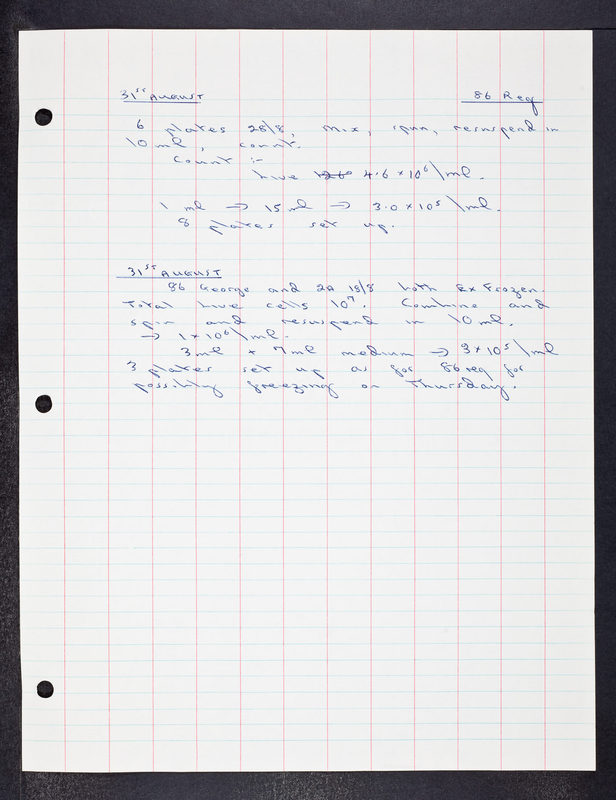 31ST AUGUST 86 Req
6 plates 28/8, mix, spun, resuspend in
10 ml, count.
Count :-
Live 4.6 x 10⁶/ml.
1 ml → 15 ml → 3.0 x 10⁵/ml.
8 plates set up.
31ST AUGUST
86 George and 2A 18/8 both Ex Frozen.
Total Live cells 10⁷. Combine and
spin and resuspend in 10 ml.
→ 1 x 10⁶/ml.
3ml + 7ml medium → 3 x 10⁵/ml
3 plates set up as for 86 req for
possibly freezing on Thursday.